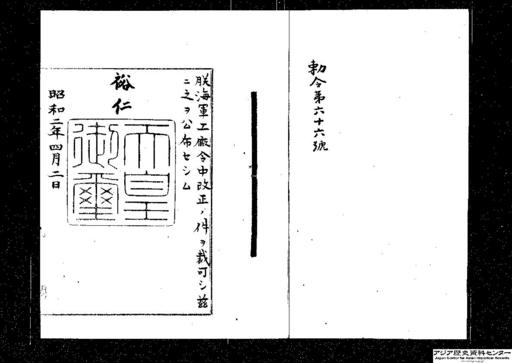 勅令第六十六號
朕海軍工廠令中改正ノ件ヲ裁可シ茲
ニ之ヲ公布セシム
裕仁
天皇
御璽
昭和二年四月二日
アジア歴史資料センター
Japan Center for Asian Historical Records